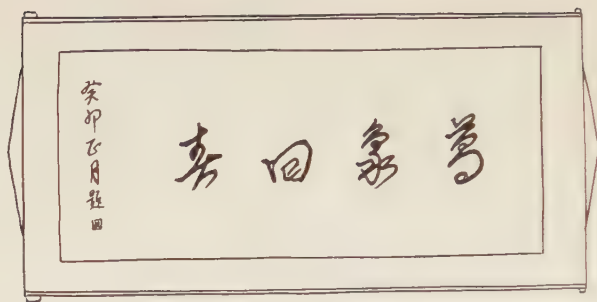 萬象回春
癸卯正月題